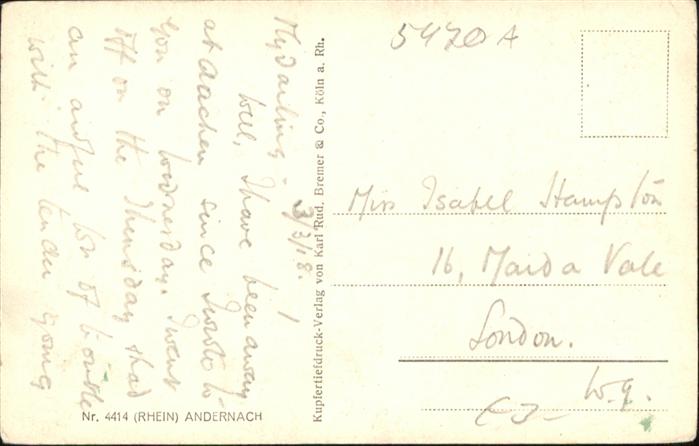 3/3/18.
My darling -
Well, I have been away
at Aachen since I wrote to
you on Wednesday. I went
off on the Thursday & had
an awful lot of bother
with the tender going
Nr. 4414 (RHEIN) ANDERNACH
Kupfertiefdruck-Verlag von Karl Rud. Bremer & Co., Köln a. Rh.
5470 A
Miss Isabel Hampton
16, Maida Vale
London.
W.9.